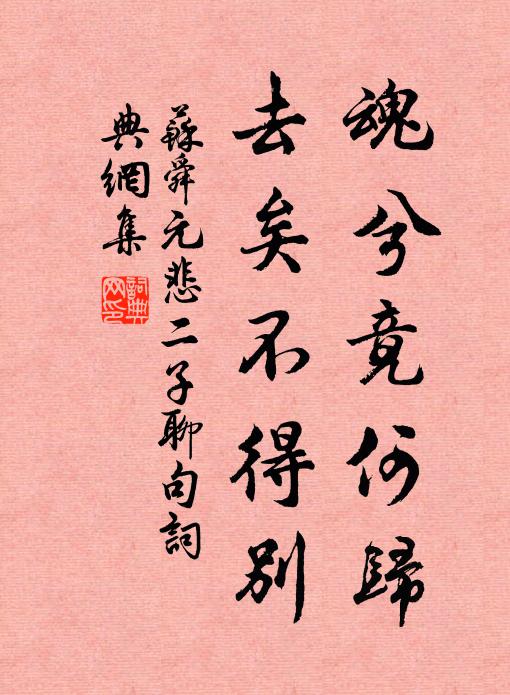 魂兮竟何歸
去矣不得別
蘇舜元悲二子聊句詞
典網集
詞典
网印